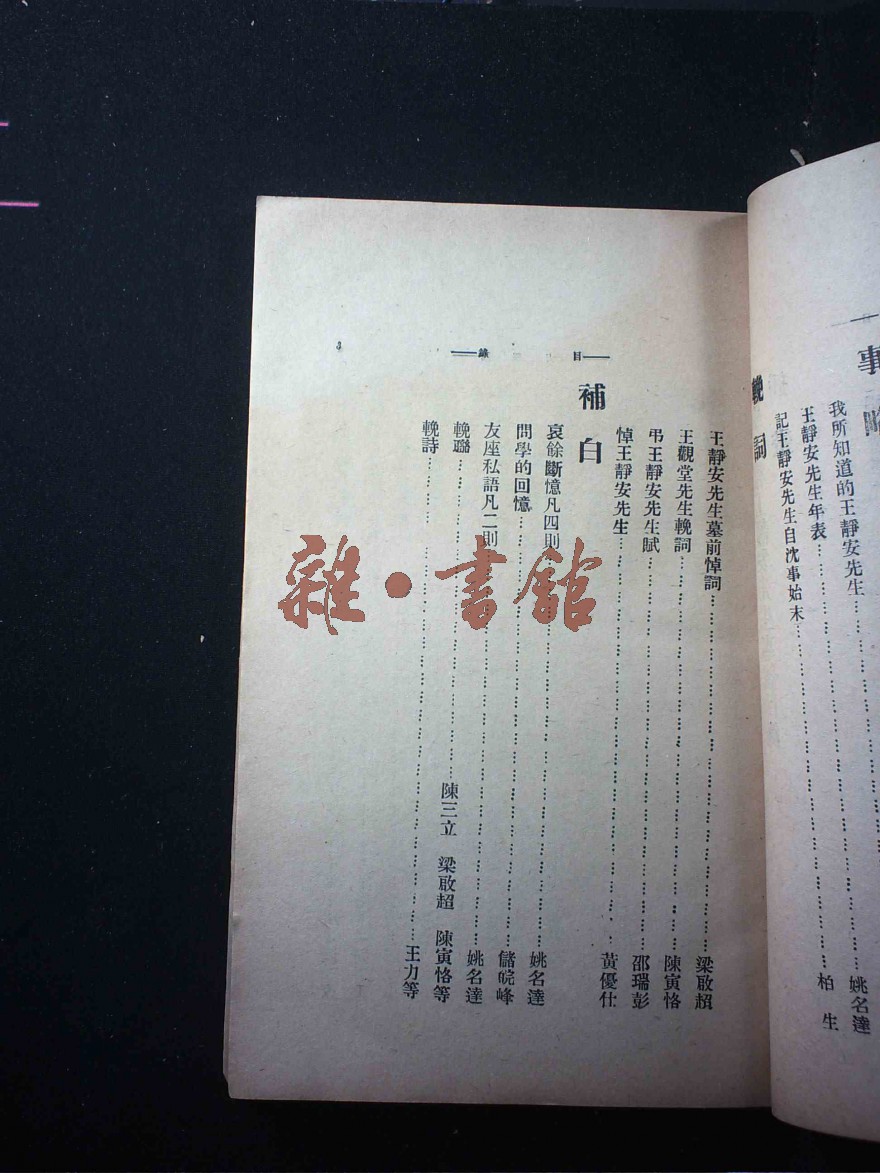 事略
我所知道的王靜安先生……姚名達
王靜安先生年表……
記王靜安先生自沈事始末……柏生
輓詞
王靜安先生墓前悼詞……梁啟超
王觀堂先生輓詞……陳寅恪
弔王靜安先生賦……邵瑞彭
悼王靜安先生……黃優仕
補白
哀餘斷憶凡四則……姚名達
問學的回憶……儲皖峰
友座私語凡二則……姚名達
輓聯……陳三立 梁啟超 陳寅恪等
輓詩……王力等
目錄
3
雜·書館